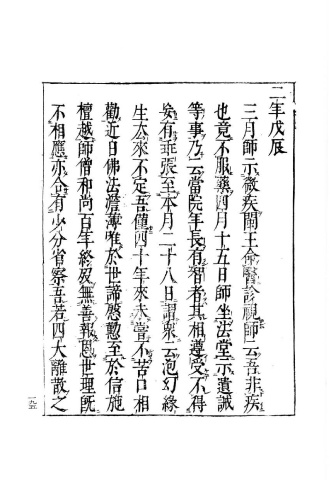 二年戊辰
三月師示微疾閩王命醫診視師云吾非疾
也竟不服藥四月十五日師坐法堂示遺誡
等事乃云當院年長有智者其相遵受不得
妄有乖張至本月二十八日謂衆云泡幻緣
生去來不定吾僅四十年來未嘗不苦口相
勸近日佛法澹薄唯於世諦慇懃至於信施
檀越師僧和尚百年終歿無善報恩世理旣
不相應亦合有少分省察吾若四大離散之
一九五